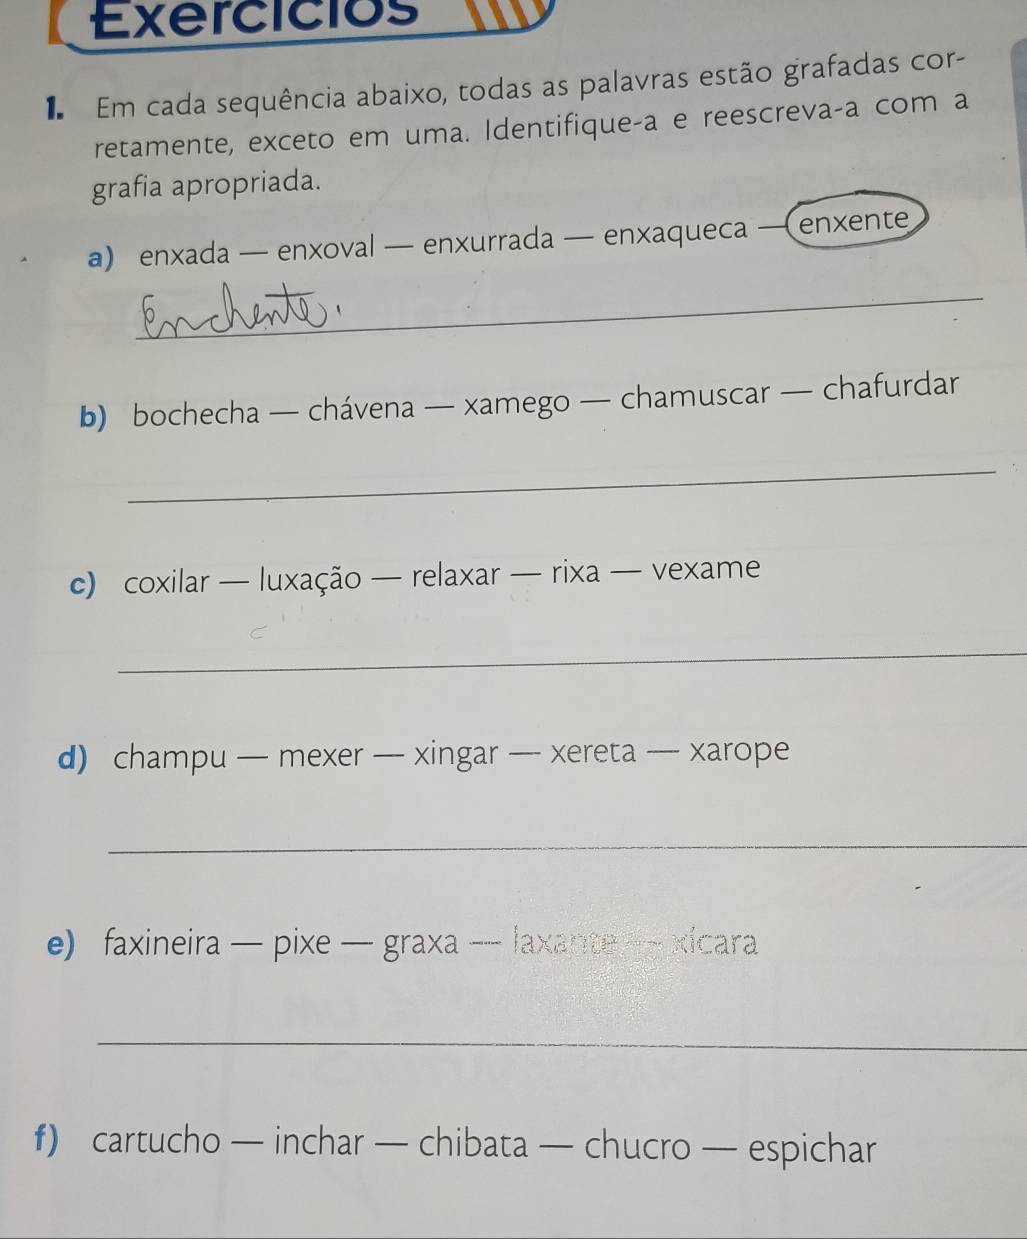 Exercícios
1. Em cada sequência abaixo, todas as palavras estão grafadas cor-
retamente, exceto em uma. Identifique-a e reescreva-a com a
grafia apropriada.
a) enxada — enxoval — enxurrada — enxaqueca — enxente
Enchente.
b) bochecha — chávena — xamego — chamuscar — chafurdar
c) coxilar — luxação — relaxar — rixa — vexame
d) champu — mexer — xingar — xereta — xarope
e) faxineira — pixe — graxa — laxante — xícara
f) cartucho — inchar — chibata — chucro — espichar